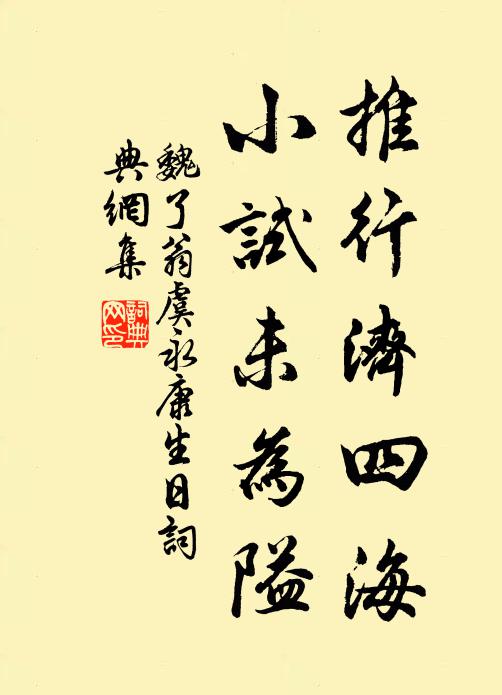 推行濟四海
小試未為隘
魏了翁虞永康生日詞
典網集
詞典網印